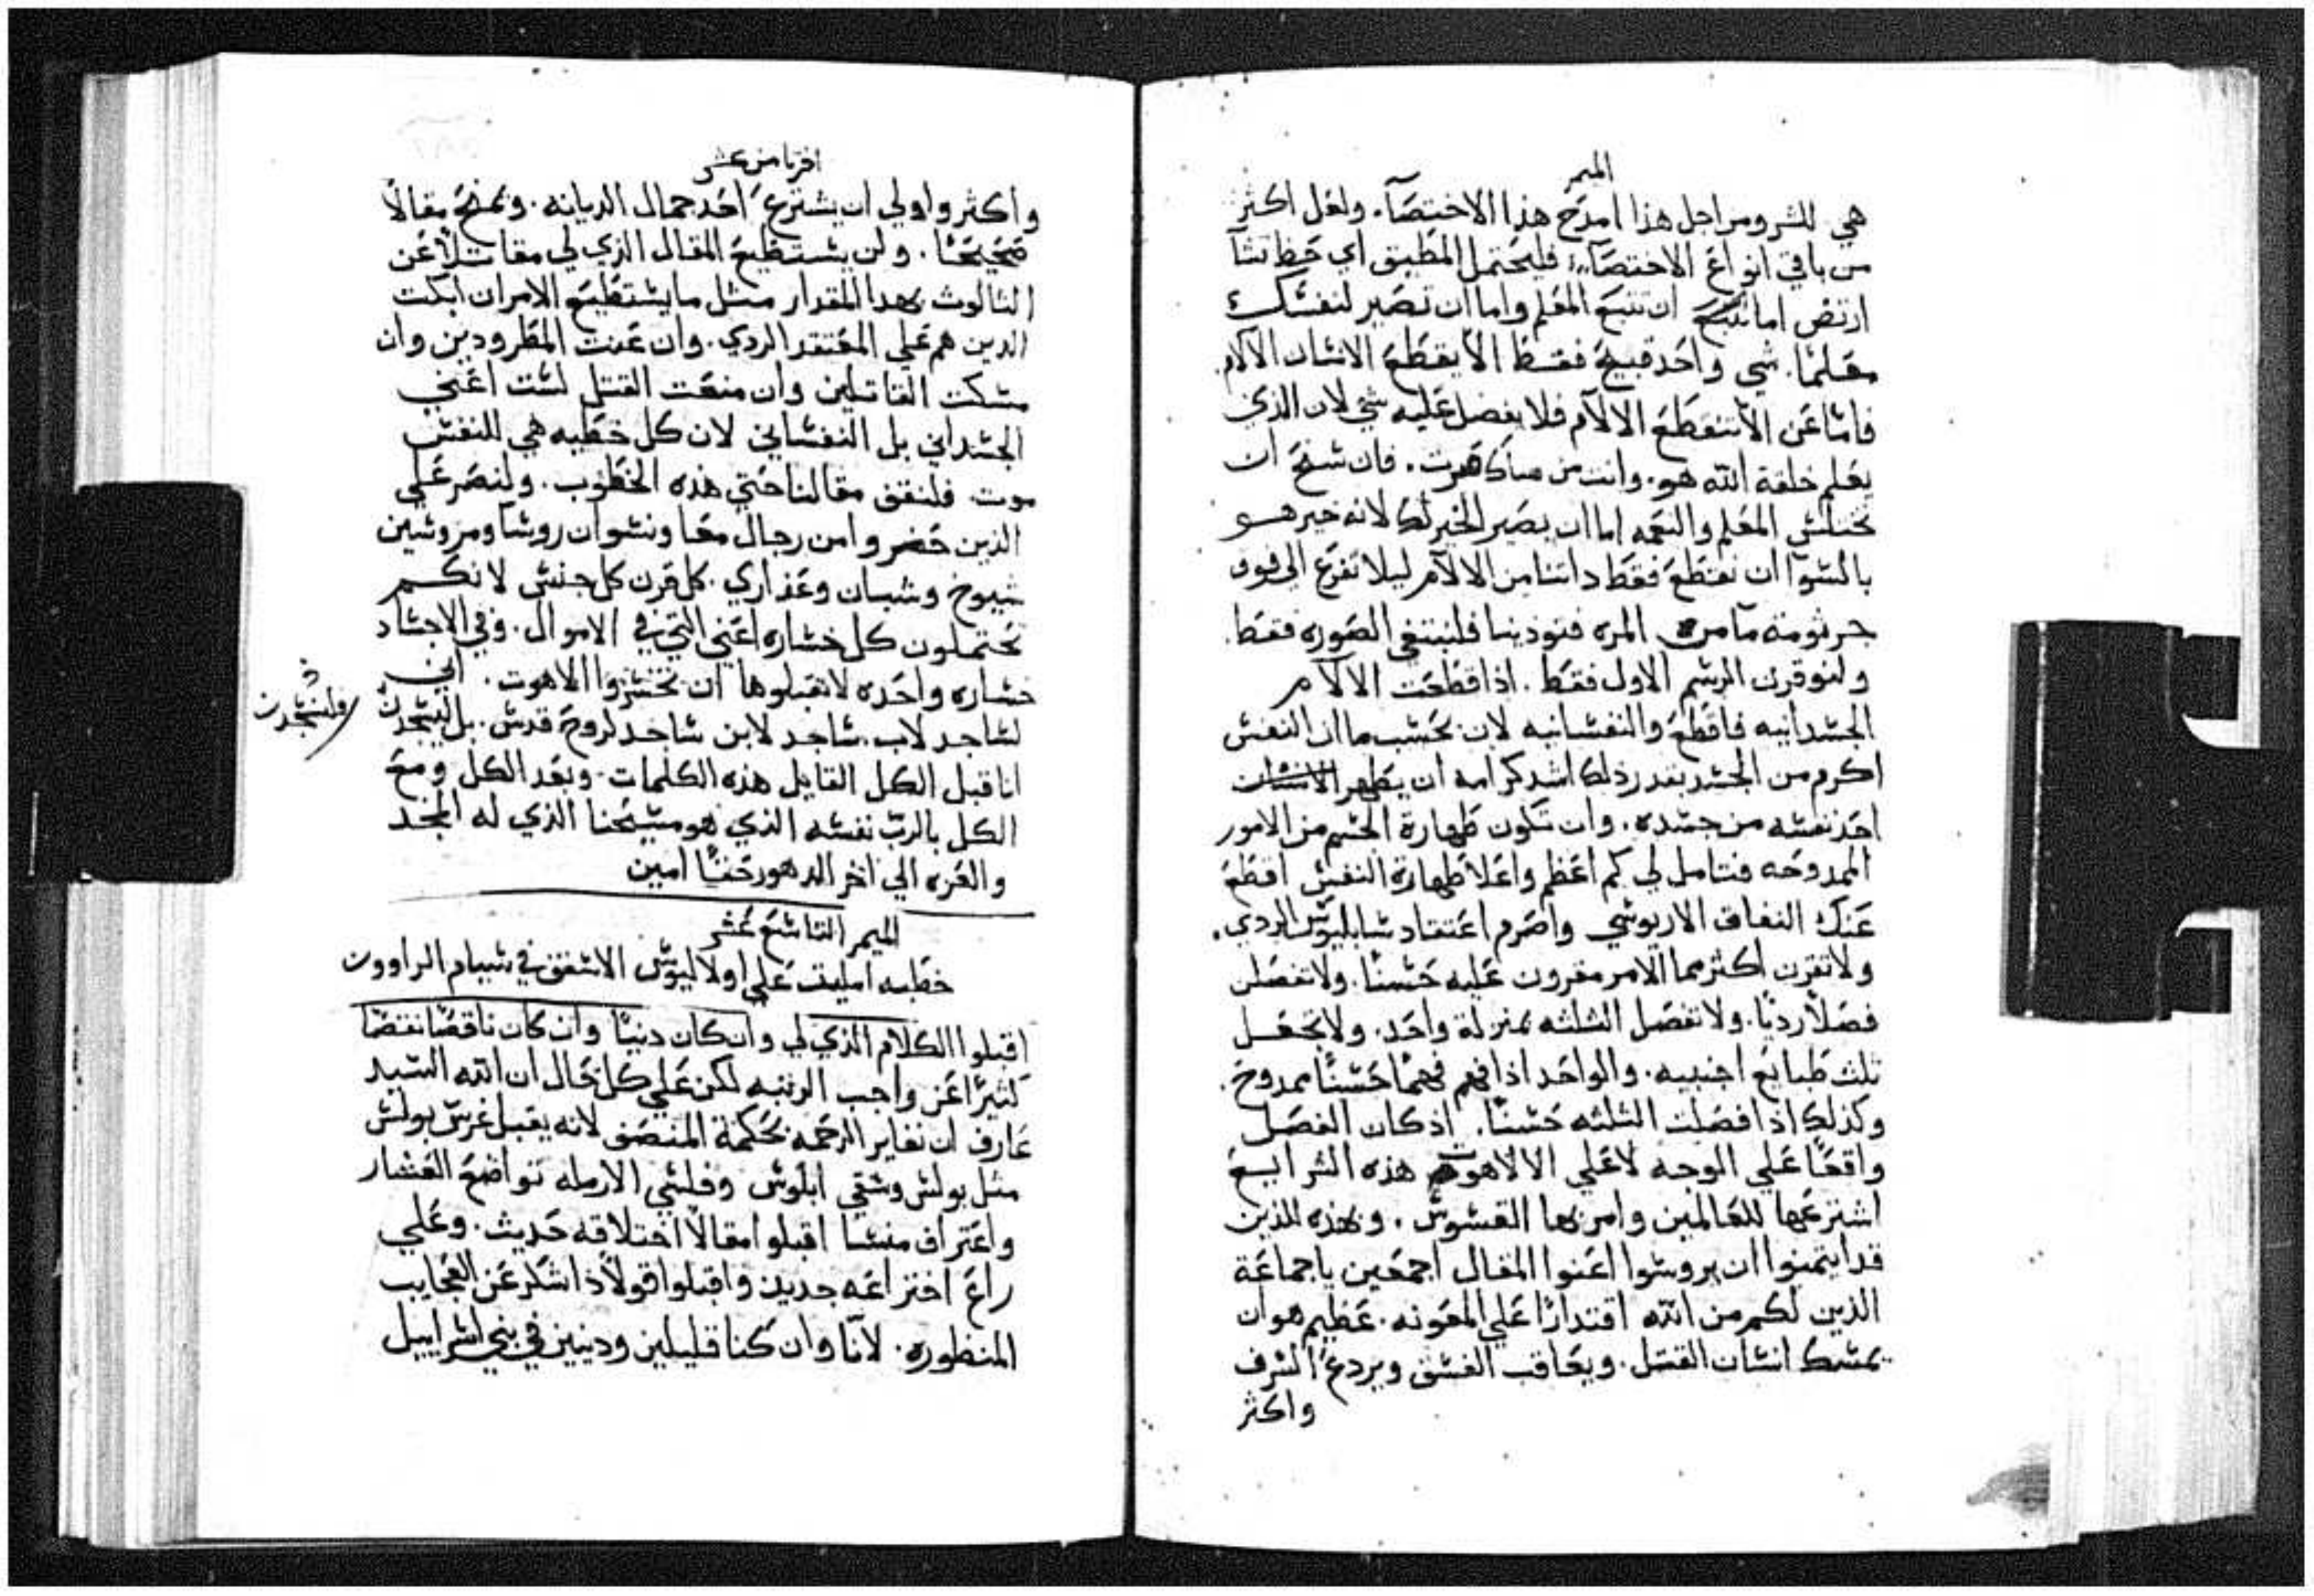 الميمر
هي للشر ومن اجل هذا امدح هذا الاختصآء. ولعل اكثر
من باقي انواع الاختصآء. فليحتمل المطيق اي حظ تشآ
ارتض اما ان تتبع المعلم واما ان تصير لنفسك
معلمًا. شي واحد قبيح فقط الا يقطع الانسان الالام.
فاما عن الا تنقطع الالام فلا يفضل عليه شي لان الذي
يعلم خلقة الله هو. وانت من فان سنح ان
المعلم والنعمه اما ان يصير الخير لك لانه خير هو
بالسوا ان نقطع فقط ذاتنا من الالام ليلا تفرع الي فوق
جرثومة ما من المره فتوذينا فلنبتغي الصوره فقط.
ولنوقرن الرسم الاول فقط. اذا قطعت الالام
الجسدانيه فاقطع والنفسانيه لان بحسب ما ان النفس
اكرم من الجسد بقدر ذلك اشد كرامه ان يطهر الانسان
احد نفسه من جسده. وان تكون طهارة الجسم من الامور
الممدوحه فتامل لي كم اعظم واعلا طهارة النفس اقطع
عنك النفاق الاريوسي واصرم اعتقاد سابليوس الردي.
ولا تقرن اكثر مما الامر مقرون عليه حسنًا. ولا تفصلن
فصلاً رديًا. ولا تفصل الثلثه بمنزلة واحد. ولا تجعل
ثلث طبايع اجنبيه. والواحد اذا فهم فهمًا حسنًا ممدوح.
وكذلك اذا فصلت الثلثه حسنًا. اذ كان الفصل
واقعًا علي الوجه لا علي الالاهوت هذه الشرايع
اشترعها للعالمين وامر بها القسوس. وبهذه للذين
قد ايتمنوا ان يروسوا اعنوا المقال اجمعين يا جماعة
الذين لكم من الله اقتدارًا علي المعونه. عظيم هو ان
يمسك انسان القتل. ويعاقب الفسق ويردع السرف
واكثر
اقر ثامن عشر
واكثر واولي ان يشترع احد جمال الديانه. ويمنح مقالاً
صحيحًا. ولن يستطيع المقال الذي لي مقاتلاً عن
الثالوث بهذا المقدار مثل ما يستطيع الامر ان ابكت
الذين هم علي المعتقد الردي. وان عنت المطرودين وان
مسكت القاتلين وان منعت القتل لست اعني
الجسداني بل النفساني لان كل خطيه هي للنفس
موت. فلنقف مقالنا حتي هذه الخطوب. ولنصر علي
الذين حضروا من رجال معًا ونسوان روسا ومروسين
شيوخ وشبان وعذاري. كل قرن كل جنس لانكم
تحتملون كل خساره اعني التي في الاموال. وفي الاجساد
خساره واحده لا تقبلوها ان تخسروا الاهوت. اني
لساجد لاب. ساجد لابن ساجد لروح قدس. بل ليسجدن
فلنسجدن
انا قبل الكل القايل هذه الكلمات. وبعد الكل ومع
الكل بالرب نفسه الذي هو مسيحنا الذي له المجد
والعزه الي اخر الدهور حقًا امين
الميمر التاسع عشر
خطبه امليت علي اولاليوس الاسقف في شيام الراووت
اقبلوا الكلام الذي لي وان كان دنيًا وان كان ناقصًا نقصًا
كثيرًا عن واجب الرتبه لكن علي كل حال ان الله السيد
عارف ان نعاير الرحمه بحكمة المنصف لانه يقبل غرس بولس
مثل بولس وسقي ابلوس وفلسي الارمله تواضع العشار
واعتراف منسا اقبلوا مقالاً اختلاقه حديث. وعلي
راع اختراعه جديد واقبلوا قولاً ذا شكر عن العجايب
المنظوره. لانا وان كنا قليلين ودنيين في بني اسراييل